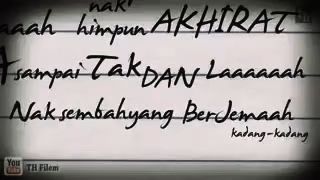 nak
aaah himpun AKHIRAT
sampai Tak DAN Laaaaaah
Nak sembahyang BerJemaah
kadang-kadang
You Tube TH Filem